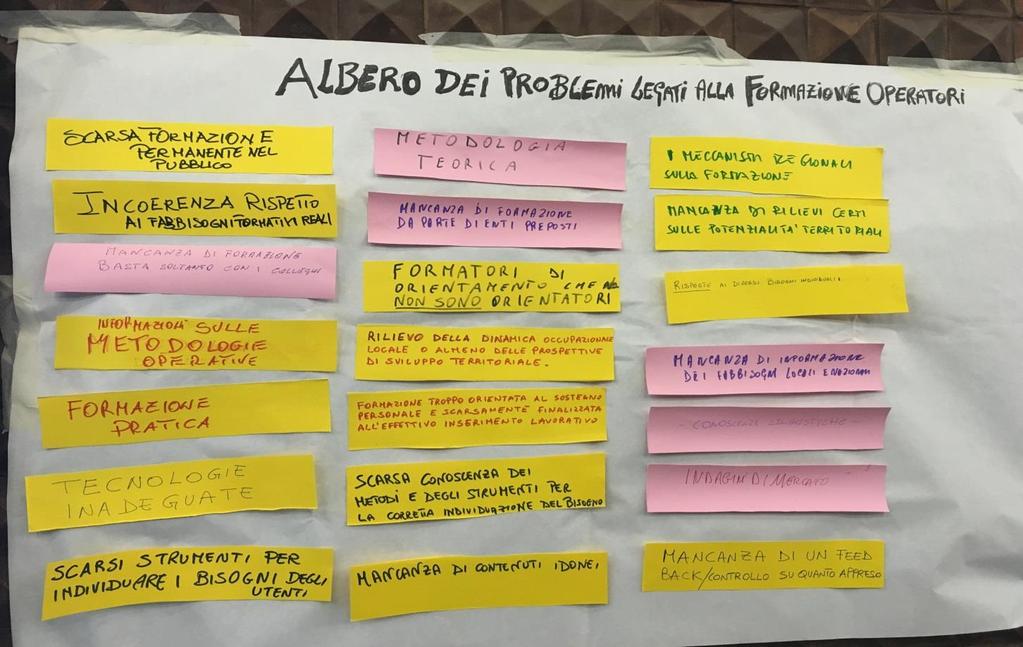 ALBERO DEI PROBLEMI LEGATI ALLA FORMAZIONE OPERATORI
SCARSA FORMAZIONE
PERMANENTE NEL
PUBBLICO
INCOERENZA RISPETTO
AI FABBISOGNI FORMATIVI REALI
MANCANZA DI FORMAZIONE
BASTA SOLTANTO CON I COLLEGHI
INFORMAZIONI SULLE
METODOLOGIE
OPERATIVE
FORMAZIONE
PRATICA
TECNOLOGIE
INADEGUATE
SCARSI STRUMENTI PER
INDIVIDUARE I BISOGNI DEGLI
UTENTI
METODOLOGIA
TEORICA
MANCANZA DI FORMAZIONE
DA PARTE DI ENTI PREPOSTI
FORMATORI DI
ORIENTAMENTO CHE
NON SONO ORIENTATORI
RILIEVO DELLA DINAMICA OCCUPAZIONALE
LOCALE O ALMENO DELLE PROSPETTIVE
DI SVILUPPO TERRITORIALE.
FORMAZIONE TROPPO ORIENTATA AL SOSTEGNO
PERSONALE E SCARSAMENTE FINALIZZATA
ALL'EFFETTIVO INSERIMENTO LAVORATIVO
SCARSA CONOSCENZA DEI
METODI E DEGLI STRUMENTI PER
LA CORRETTA INDIVIDUAZIONE DEL BISOGNO
MANCANZA DI CONTENUTI IDONEI
I MECCANISMI REGIONALI
SULLA FORMAZIONE
MANCANZA DI RILIEVI CERTI
SULLE POTENZIALITA' TERRITORIALI
RISPOSTE AI DIVERSI BISOGNI INDIVIDUALI
MANCANZA DI INFORMAZIONE
DEI FABBISOGNI LOCALI E NAZIONALI
- CONOSCENZE LINGUISTICHE -
INDAGINI DI MERCATO
MANCANZA DI UN FEED
BACK/CONTROLLO SU QUANTO APPRESO